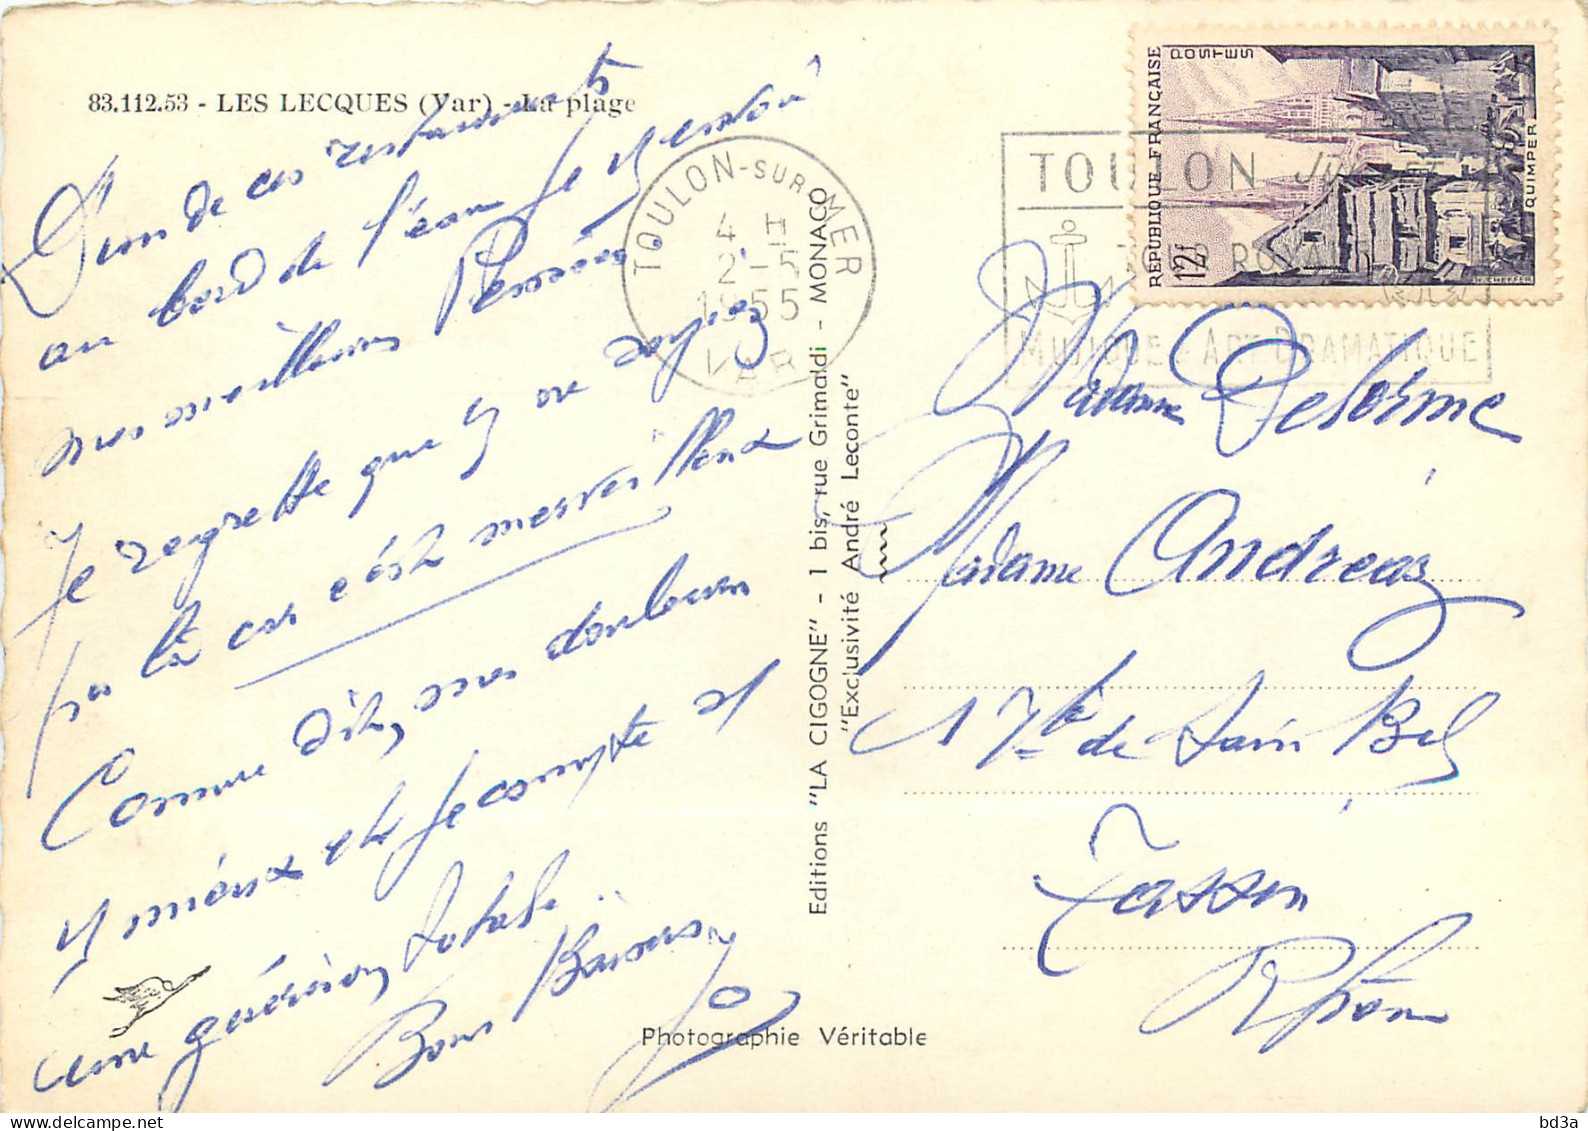 83.112.53 - LES LECQUES (Var) - La plage
D'un de ces restaurants
au bord de l'eau je y envoi
mes meilleures Pensées
Je regrette que y ne soyiez
pas là car c'est merveilleux
Comme dit, mes douleurs
y mieux et je compte et
une guérison totale..
Bons Baisers
Photographie Véritable
Editions "LA CIGOGNE" - 1 bis, rue Grimaldi - MONACO
"Exclusivité André Leconte"
TOULON-SUR-MER
4 H
2-5
1955
VAR
TOULON
MUSIQUE - ART DRAMATIQUE
RÉPUBLIQUE FRANÇAISE
POSTES
12f
QUIMPER
Madame Delorme
Madame Andréas
de Sain Bel
Tassin
Rhône
bd3a